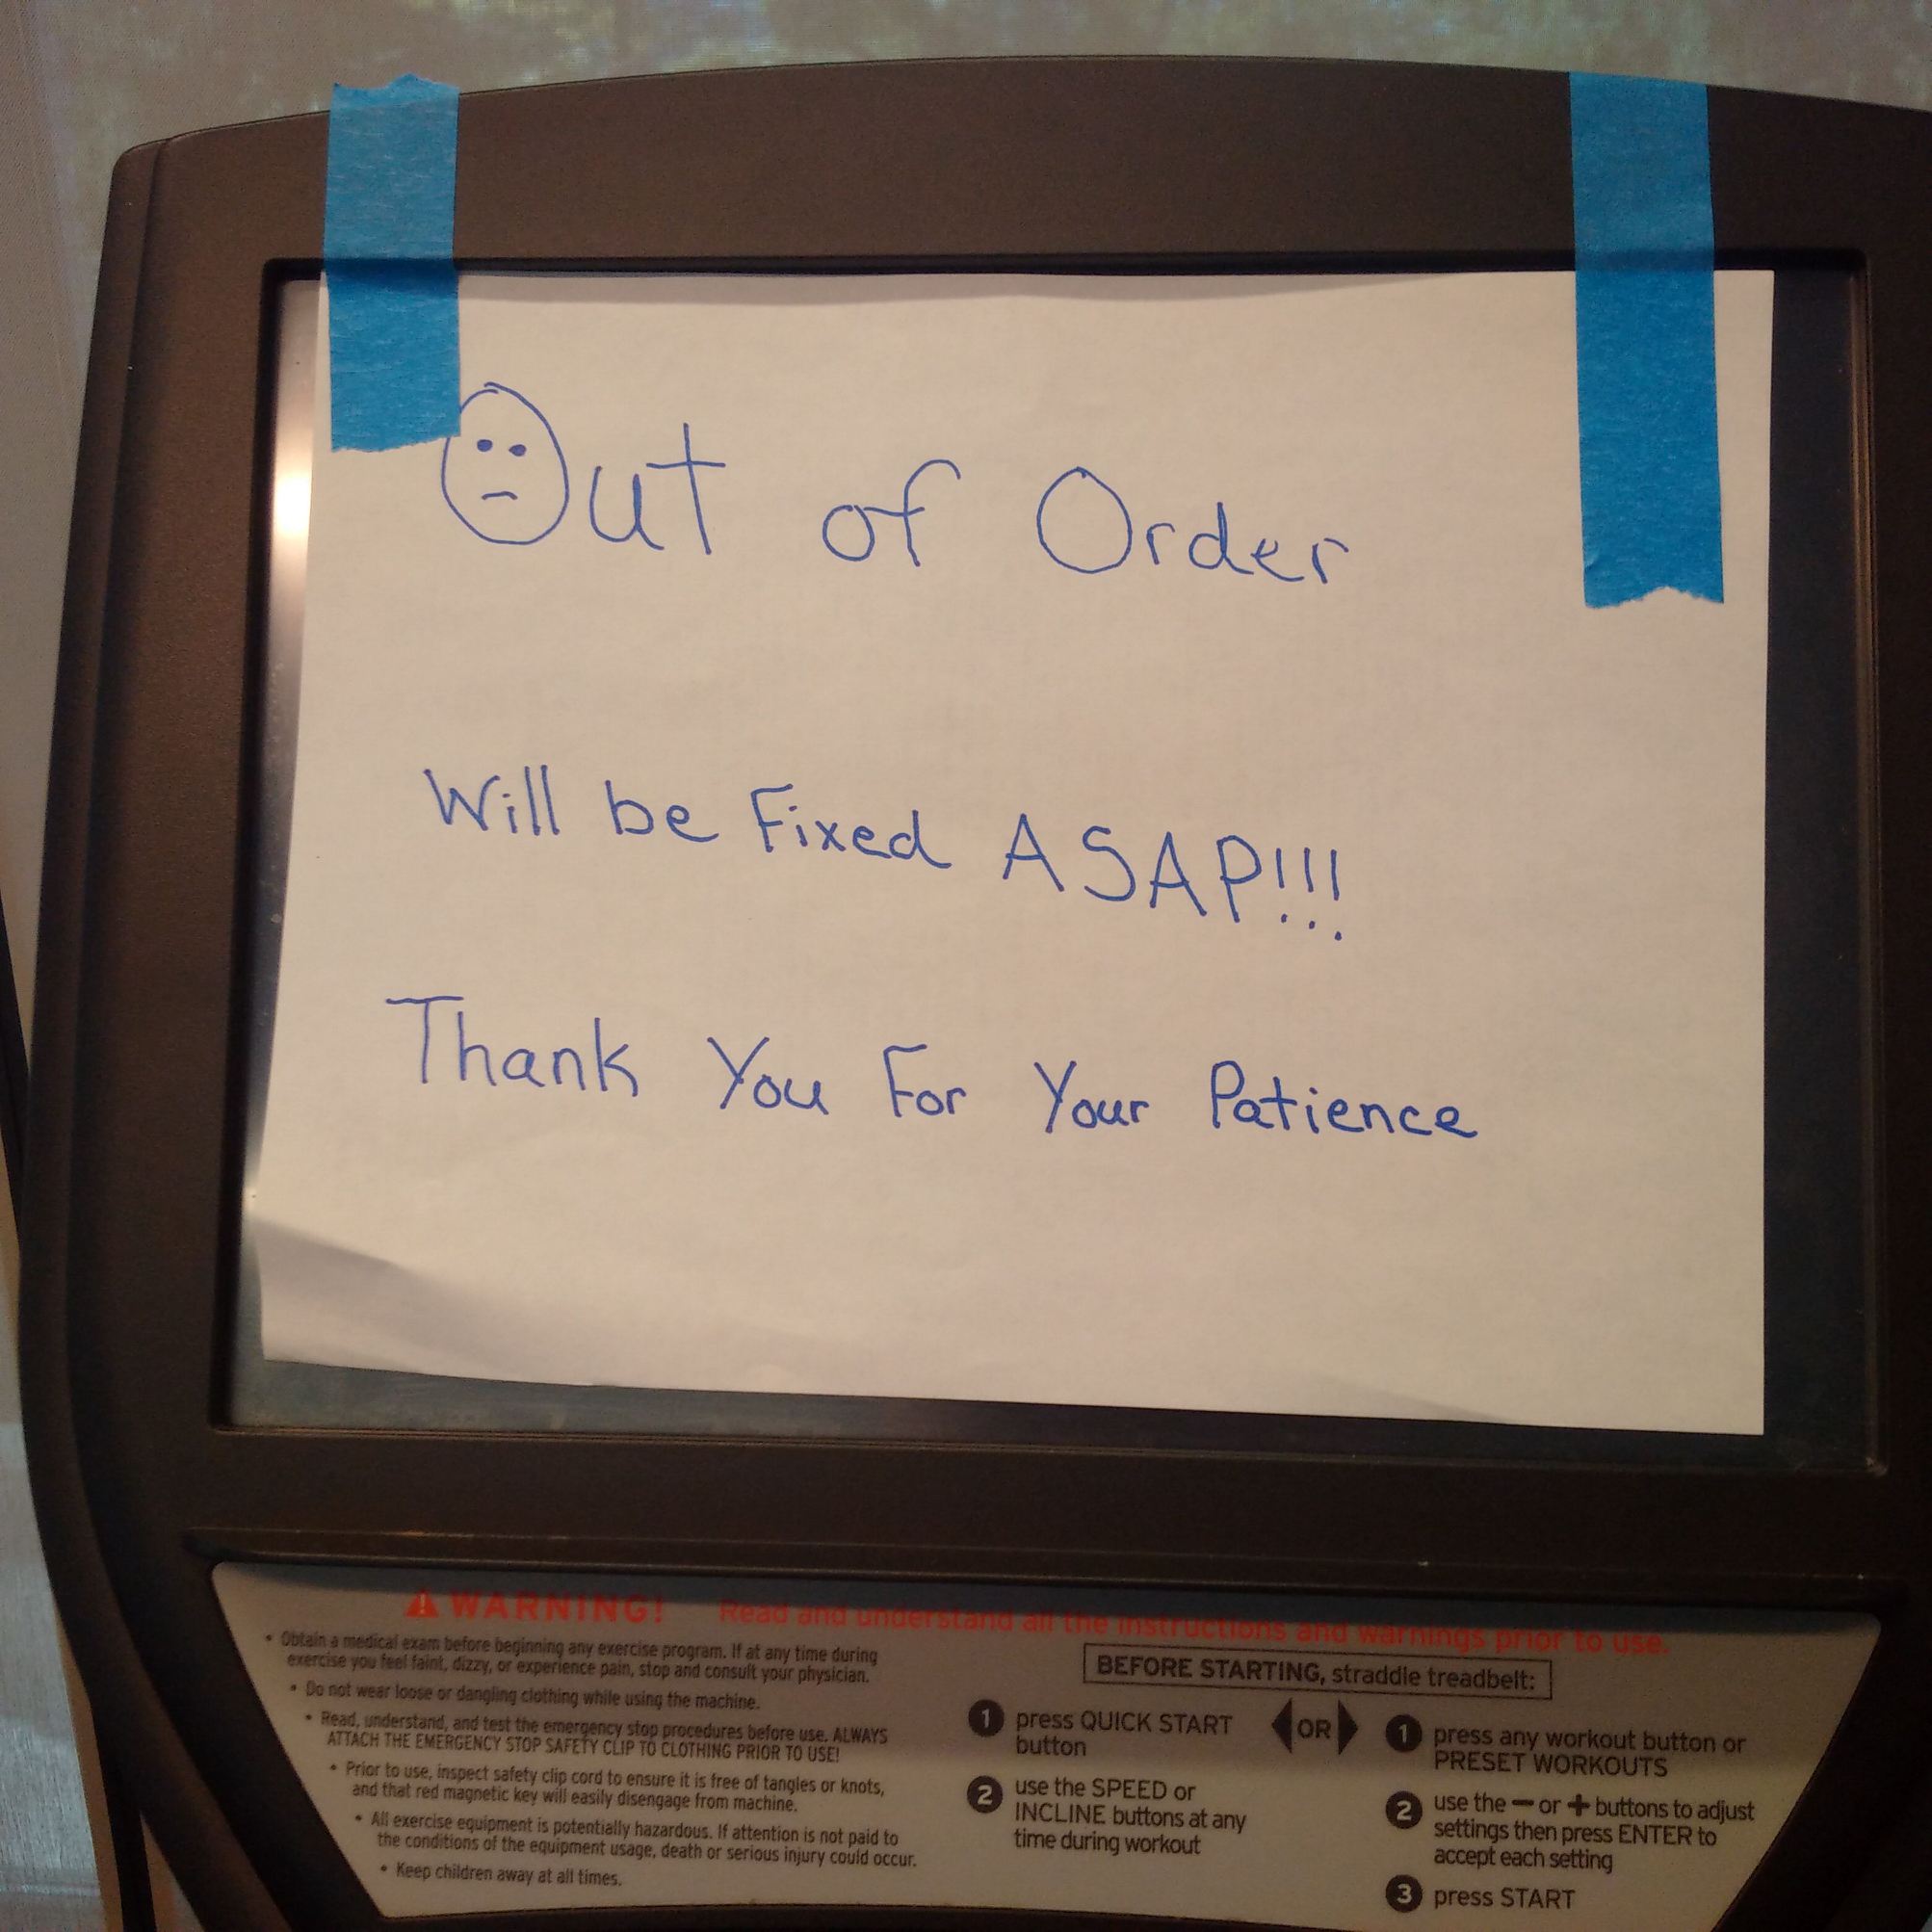 Out of Order
Will be Fixed ASAP!!!
Thank You For Your Patience
WARNING! Read and understand all the instructions and warnings prior to use.
• Obtain a medical exam before beginning any exercise program. If at any time during
exercise you feel faint, dizzy, or experience pain, stop and consult your physician.
• Do not wear loose or dangling clothing while using the machine.
• Read, understand, and test the emergency stop procedures before use. ALWAYS
ATTACH THE EMERGENCY STOP SAFETY CLIP TO CLOTHING PRIOR TO USE!
• Prior to use, inspect safety clip cord to ensure it is free of tangles or knots,
and that red magnetic key will easily disengage from machine.
• All exercise equipment is potentially hazardous. If attention is not paid to
the conditions of the equipment usage, death or serious injury could occur.
• Keep children away at all times.
BEFORE STARTING, straddle treadbelt:
1 press QUICK START
button
2 use the SPEED or
INCLINE buttons at any
time during workout
OR
1 press any workout button or
PRESET WORKOUTS
2 use the − or + buttons to adjust
settings then press ENTER to
accept each setting
3 press START